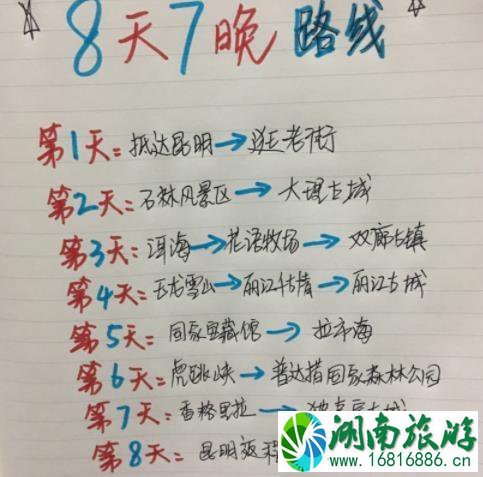 8天7晚路线
第1天：抵达昆明→逛老街
第2天：石林风景区→大理古城
第3天：洱海→花语牧场→双廊古镇
第4天：玉龙雪山→丽江千古情→丽江古城
第5天：国家宝藏馆→拉市海
第6天：虎跳峡→普达措国家森林公园
第7天：香格里拉→独克宗古城
第8天：昆明返程
湖南旅游
www.16816886.cn